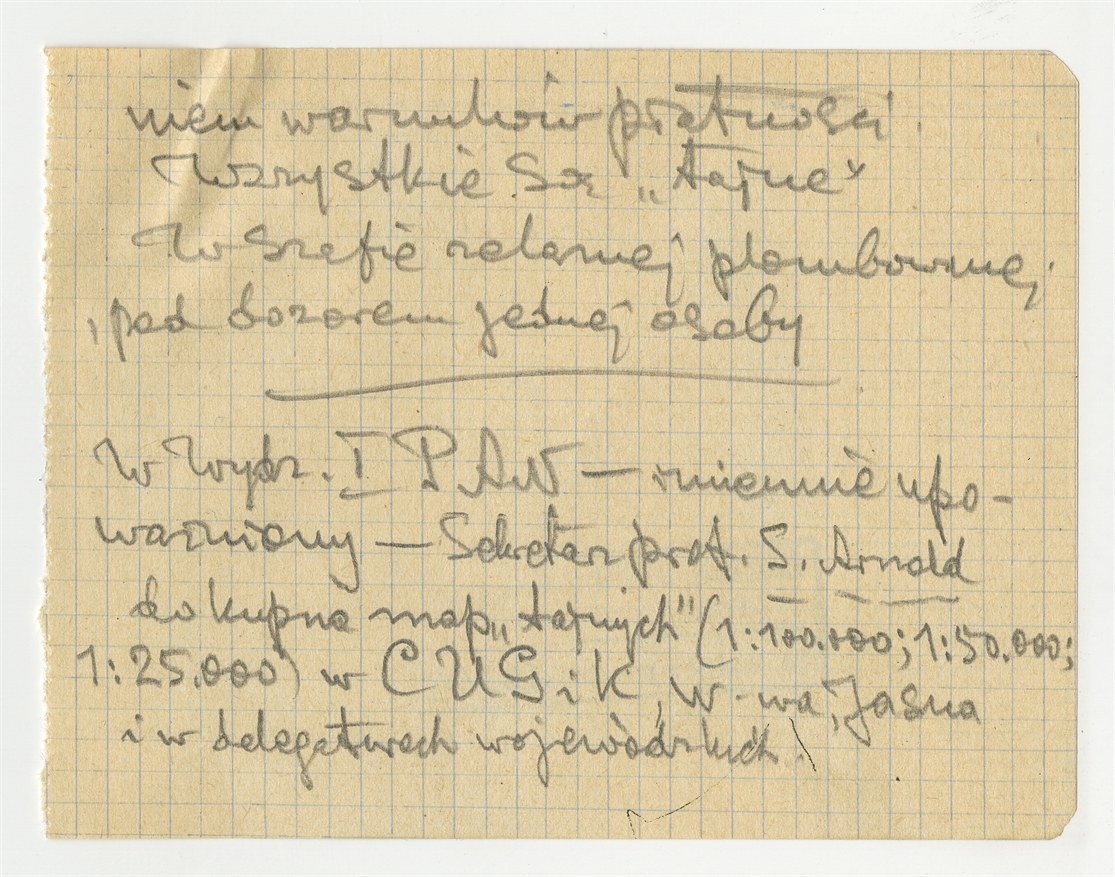 niem warunków płatności.
Wszystkie są „tajne”
W szafie żelaznej plombowanej,
, pod dozorem jednej osoby
W Wydz. I PAN — imiennie upo-
ważniony — Sekretarz prof. S. Arnold
do kupna map „tajnych” (1:100.000; 1:50.000;
1:25.000) w CUGiK, W-wa, Jasna
i w delegaturach wojewódzkich.